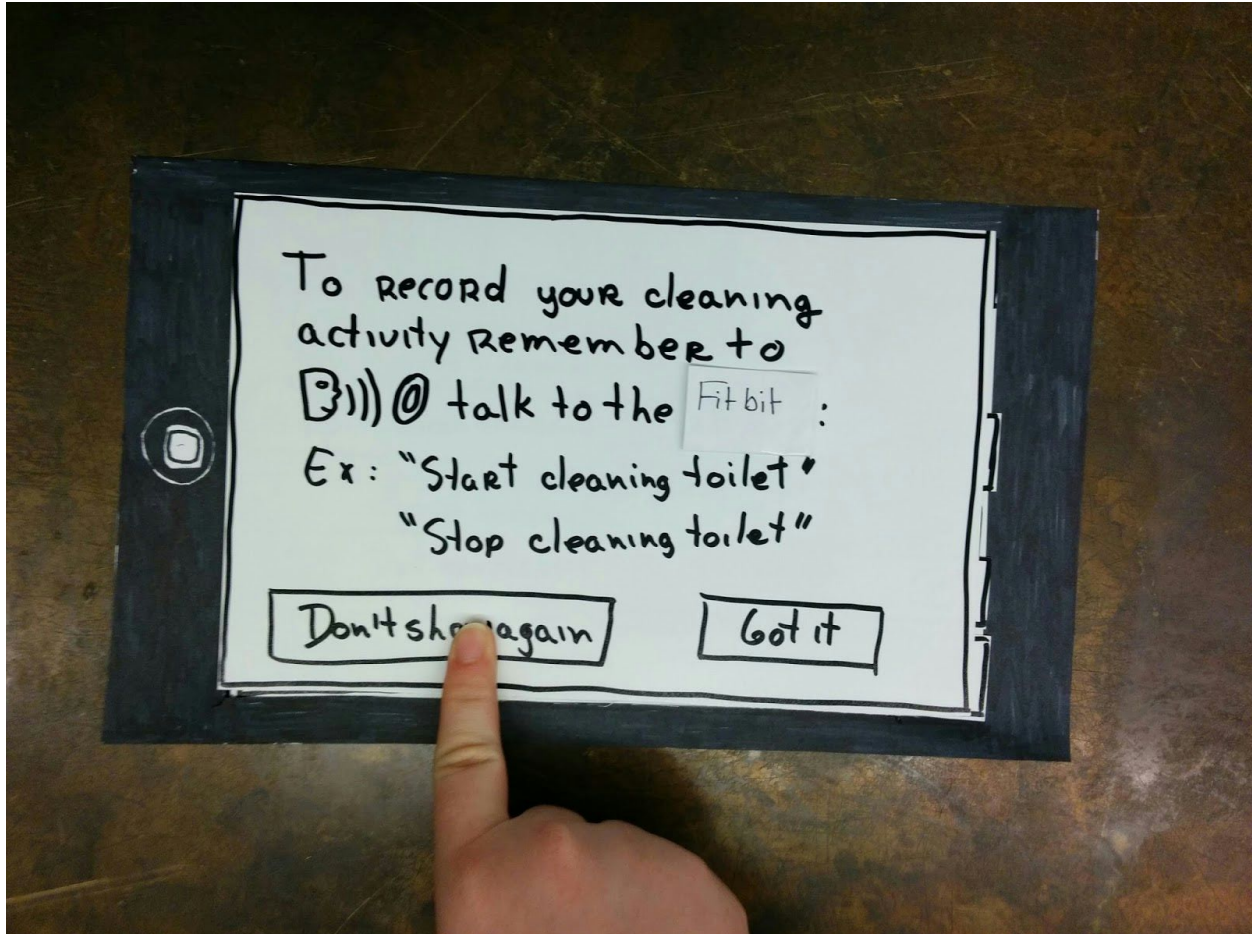 To record your cleaning
activity remember to
talk to the Fitbit :
Ex: "Start cleaning toilet"
"Stop cleaning toilet"
Don't show again
Got it